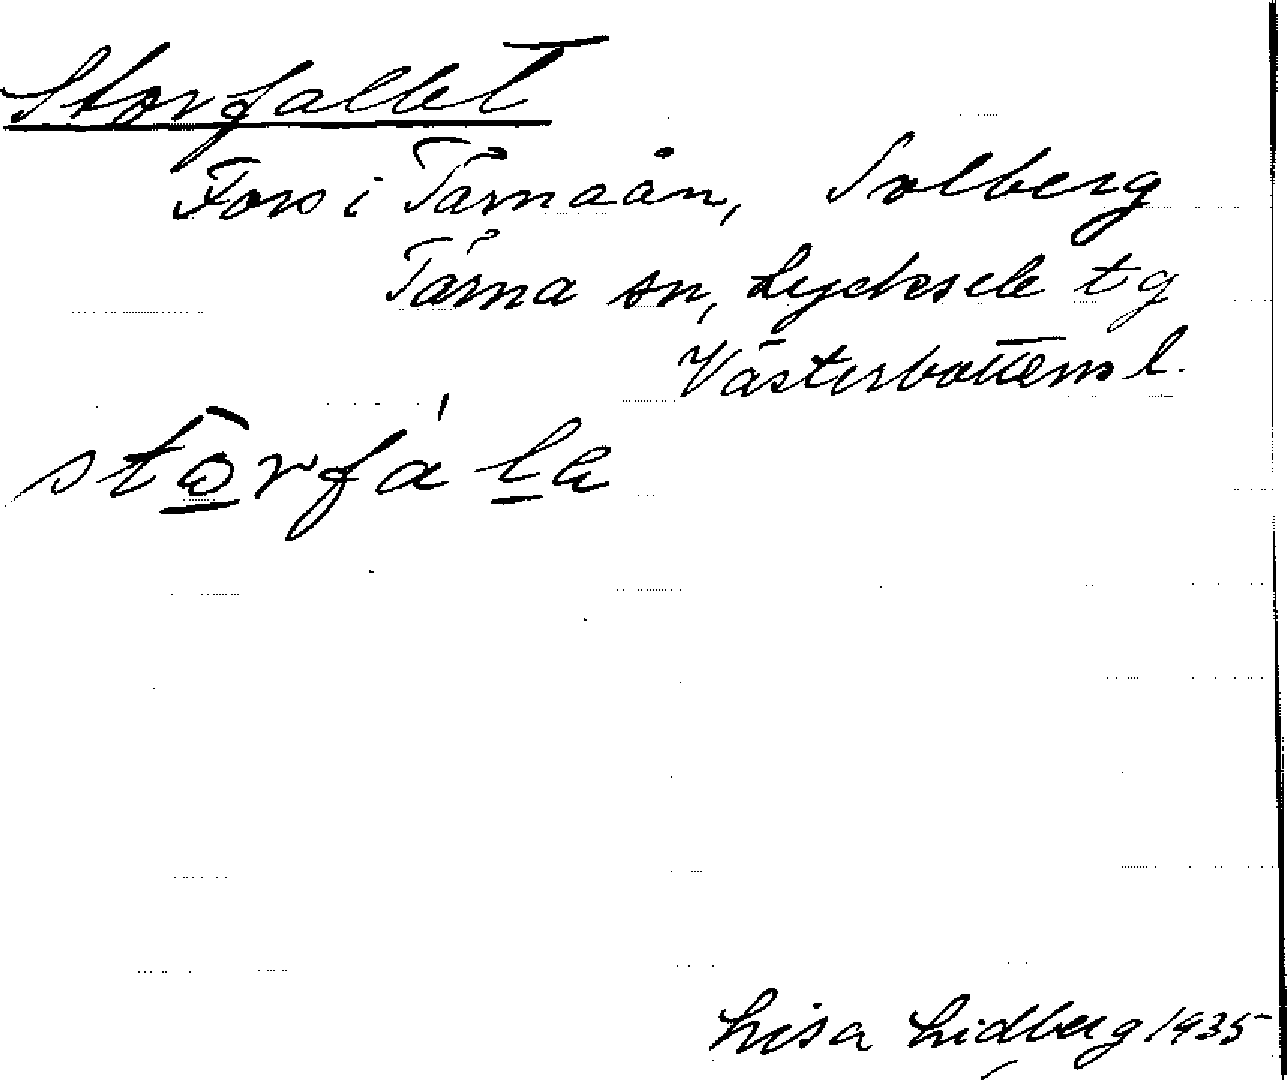 Storfallet
Fors i Tärnaån, Solberg
Tärna sn, Lycksele tg
Västerbottens l.
stōrfá la
Lisa Lidberg 1935